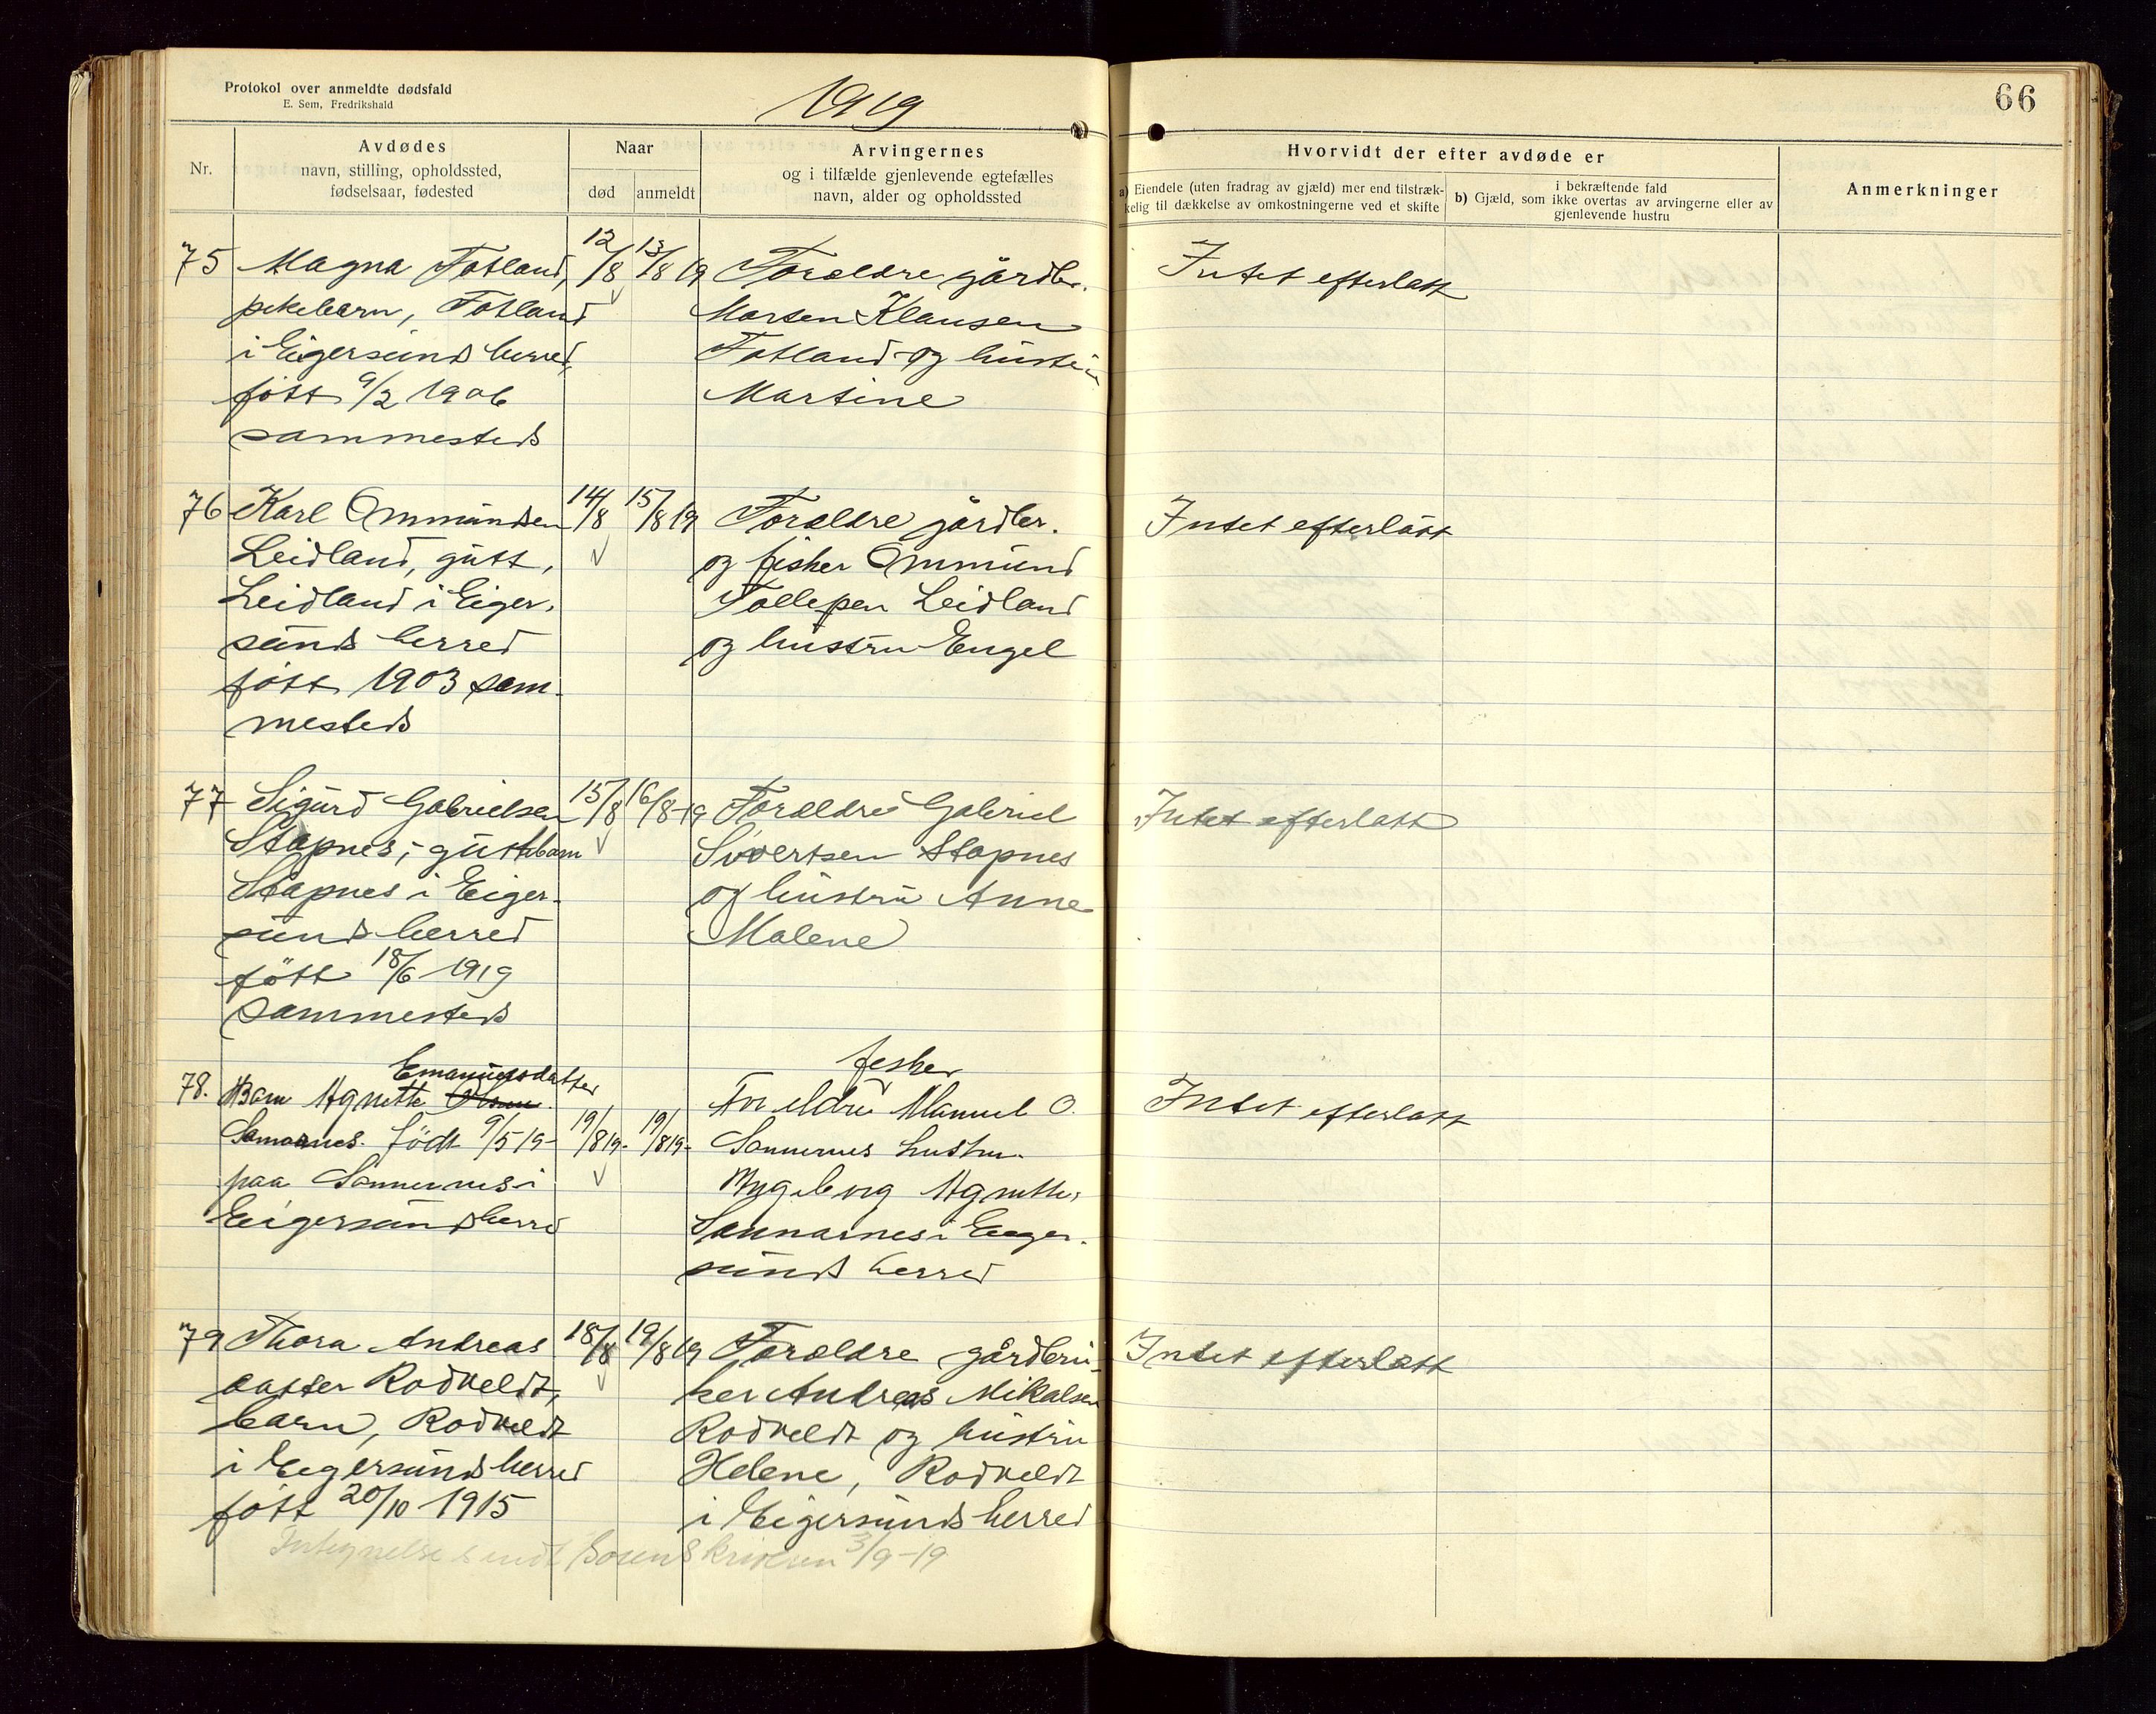 Protokol over anmeldte dødsfald
E. Sem, Fredrikshald
1919
66
Nr.
Avdødes
navn, stilling, opholdssted,
fødselsaar, fødested
Naar
død
anmeldt
Arvingernes
og i tilfælde gjenlevende egtefælles
navn, alder og opholdssted
Hvorvidt der efter avdøde er
a) Eiendele (uten fradrag av gjæld) mer end tilstræk-
kelig til dækkelse av omkostningerne ved et skifte
i bekræftende fald
b) Gjæld, som ikke overtas av arvingerne eller av
gjenlevende hustru
Anmerkninger
75 Magna Fotland, 12/8 13/8 19 Forældre gårdbr. Intet efterlatt
pikebarn, Fotland Morten Klausen
i Eigersunds herred, Fotland og hustru
født 9/2 1906 Martine
sammesteds
76 Karl Ommundsen 14/8 15/8 19 Forældre gårdbr. Intet efterlatt
Leidland, gutt, og fisker Ommund
Leidland i Eiger- Tollefsen Leidland
sunds herred og hustru Engel
født 1903 sam-
mesteds
77 Sigurd Gabrielsen 15/8 16/8-19 Forældre Gabriel Intet efterlatt
Stapnes, guttebarn Sivertsen Stapnes
Stapnes i Eiger- og hustru Anne
sunds herred Malene
født 18/6 1919
sammesteds
Emanuelsdatter fisker
78. Barn Agnette Olsen Forældre Manuel O. Intet efterlatt
født 9/5 19- 19/8 19- 19/8 19- hustru
paa i
Eigersunds herred i Eiger-
sunds herred
79 Thora Andreas 18/8 19/8 19 Forældre gårdbru- Intet efterlatt
datter Rodveldt, ker Andreas Mikalsen
barn, Rodveldt Rodveldt og hustru
i Eigersunds herred Helene, Rodveldt
født 20/10 1915 i Eigersunds herred
sendt Sorenskriveren 3/9-19